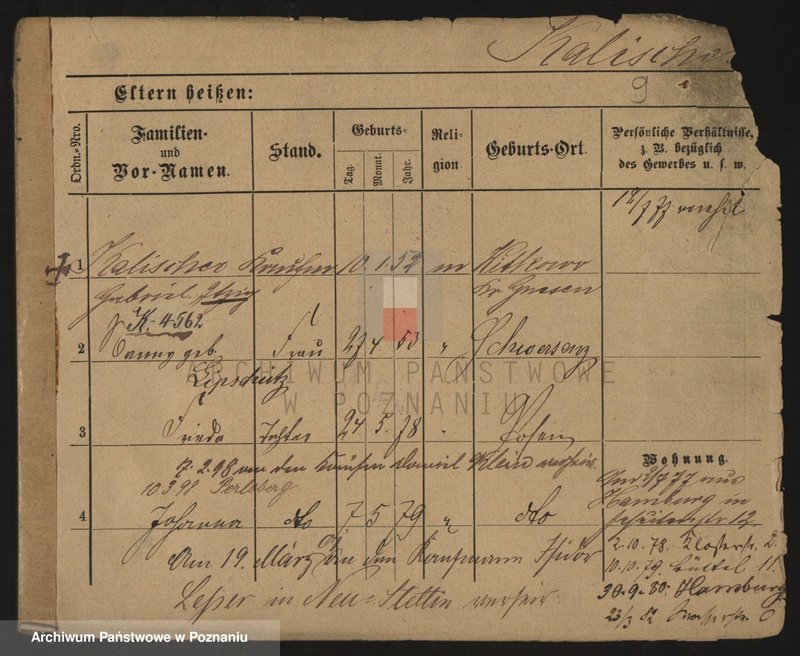 Kalischer
9
Eltern heißen:
Ordn.-Nro.
Familien-
und
Vor-Namen.
Stand.
Geburts-
Tag.
Monat.
Jahr.
Reli-
gion
Geburts-Ort.
Persönliche Verhältnisse,
z. B. bezüglich
des Gewerbes u. s. w.
1 Kalischer Kaufm 10. 1. 52 m Witkowo
Gabriel, Itzig Kr Gnesen
K-4562
2 geb. Frau 27 4. 53 " Schwersenz
Lipschütz
3 Frieda Tochter 24. 5. 78 Posen
7. 2. 98 an den Kaufm Daniel Klein verheir.
10.3.98 Perleberg
4 Johanna dto 7 5 79 " dto
Am 19. März an den Kaufmann Isidor
Lesser in Neu-Stettin verheir.
Wohnung.
aus
Hamburg in
12
2.10.78. Klosterstr. 2.
10.10.79 Büttel 11.
30.9.80. Hamburg
23/3 82
ARCHIWUM PAŃSTWOWE
W POZNANIU
Archiwum Państwowe w Poznaniu